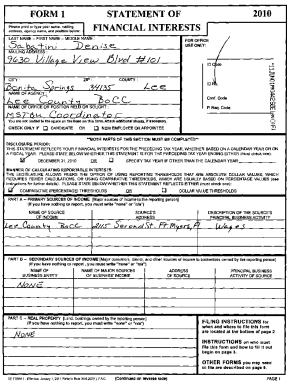 FORM 1
STATEMENT OF
2010
FINANCIAL INTERESTS
Please print or type your name, mailing address, agency name, and position below:
LAST NAME - FIRST NAME - MIDDLE NAME:
FOR OFFICE USE ONLY:
Sabatini Denise
MAILING ADDRESS:
9630 Village View Blvd #101
ID Code
CITY: ZIP: COUNTY:
Bonita Springs 34135 Lee
ID No.
NAME OF AGENCY:
Lee County BoCC
Conf. Code
NAME OF OFFICE OR POSITION HELD OR SOUGHT:
P. Req. Code
MSTBU Coordinator
CHECK ONLY IF CANDIDATE OR NEW EMPLOYEE OR APPOINTEE
**BOTH PARTS OF THIS SECTION MUST BE COMPLETED**
DISCLOSURE PERIOD:
THIS STATEMENT REFLECTS YOUR FINANCIAL INTERESTS FOR THE PRECEDING TAX YEAR, WHETHER BASED ON A CALENDAR YEAR OR ON A FISCAL YEAR. PLEASE STATE BELOW WHETHER THIS STATEMENT IS FOR THE PRECEDING TAX YEAR ENDING EITHER (must check one):
DECEMBER 31, 2010 OR SPECIFY TAX YEAR IF OTHER THAN THE CALENDAR YEAR:
MANNER OF CALCULATING REPORTABLE INTERESTS:
THE LEGISLATURE ALLOWS FILERS THE OPTION OF USING REPORTING THRESHOLDS THAT ARE ABSOLUTE DOLLAR VALUES, WHICH REQUIRES FEWER CALCULATIONS, OR USING COMPARATIVE THRESHOLDS, WHICH ARE USUALLY BASED ON PERCENTAGE VALUES (see instructions for further details). PLEASE STATE BELOW WHETHER THIS STATEMENT REFLECTS EITHER (must check one):
COMPARATIVE (PERCENTAGE) THRESHOLDS OR DOLLAR VALUE THRESHOLDS
PART A - PRIMARY SOURCES OF INCOME [Major sources of income to the reporting person]
(If you have nothing to report, you must write "none" or "n/a")
NAME OF SOURCE OF INCOME
SOURCE'S ADDRESS
DESCRIPTION OF THE SOURCE'S PRINCIPAL BUSINESS ACTIVITY
Lee County BoCC 2115 Second St. Ft. Myers, Fl Wages
PART B - SECONDARY SOURCES OF INCOME [Major customers, clients, and other sources of income to businesses owned by the reporting person]
(If you have nothing to report, you must write "none" or "n/a")
NAME OF BUSINESS ENTITY
NAME OF MAJOR SOURCES OF BUSINESS' INCOME
ADDRESS OF SOURCE
PRINCIPAL BUSINESS ACTIVITY OF SOURCE
NONE
PART C - REAL PROPERTY [Land, buildings owned by the reporting person]
(If you have nothing to report, you must write "none" or "n/a")
NONE
FILING INSTRUCTIONS for when and where to file this form are located at the bottom of page 2.
INSTRUCTIONS on who must file this form and how to fill it out begin on page 3.
OTHER FORMS you may need to file are described on page 6.
(Continued on reverse side)
PAGE 1